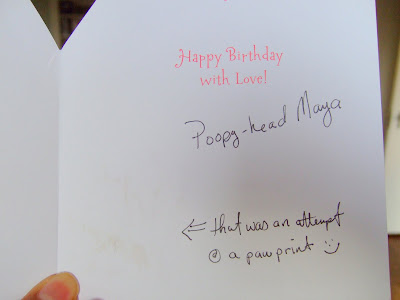 Happy Birthday
with Love!
Poopy-head Maya
⇐ that was an attempt
@ a pawprint :)